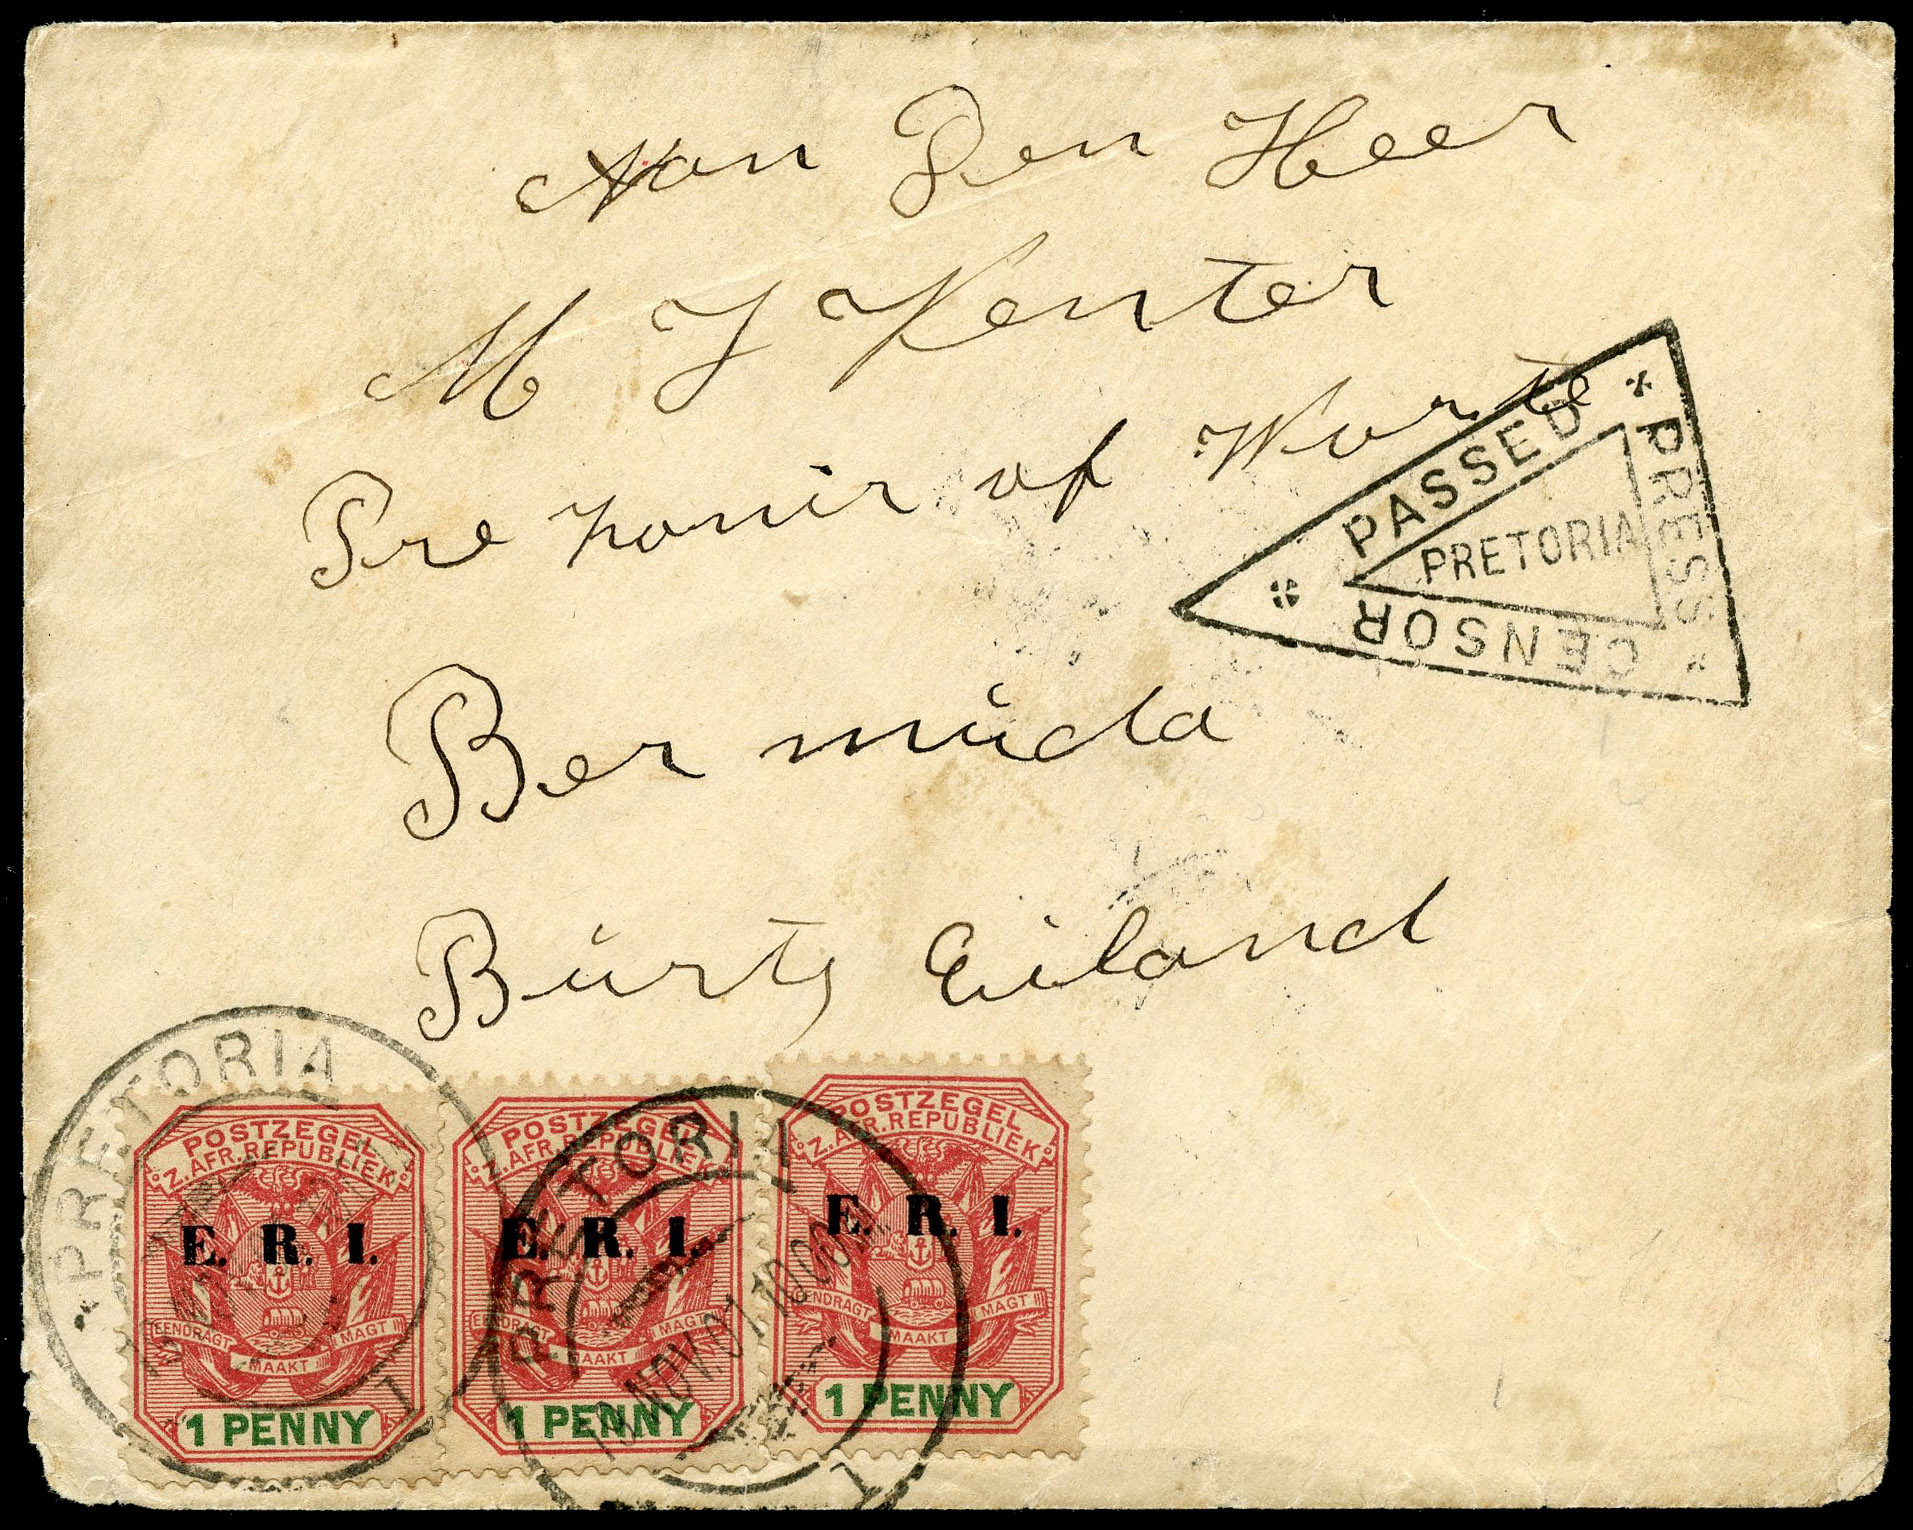 Aan Den Heer
M J Venter
Pre zonir of Worte
Bermuda
Burts Eiland
PASSED PRESS CENSOR
PRETORIA
PRETORIA
PRETORIA
10 NOV.01 10 00
1
1
POSTZEGEL
Z. AFR. REPUBLIEK
E. R. I.
EENDRAGT MAAKT MAGT
1 PENNY
POSTZEGEL
Z. AFR. REPUBLIEK
E. R. I.
EENDRAGT MAAKT MAGT
1 PENNY
POSTZEGEL
Z. AFR. REPUBLIEK
E. R. I.
EENDRAGT MAAKT MAGT
1 PENNY